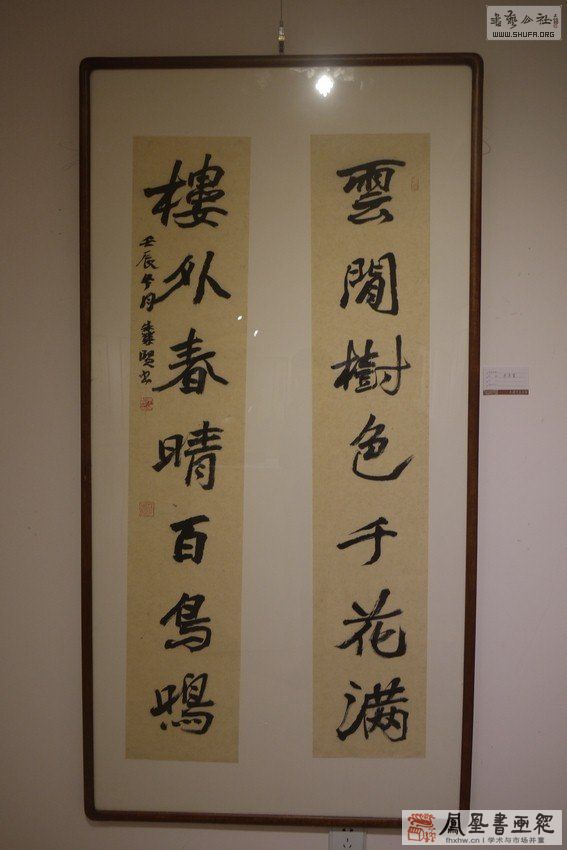 書藝公社
WWW.SHUFA.ORG
雲閒樹色千花滿
樓外春晴百鳥鳴
壬辰冬月
鳳凰書画網
fhxhw.cn | 学术与市场并重